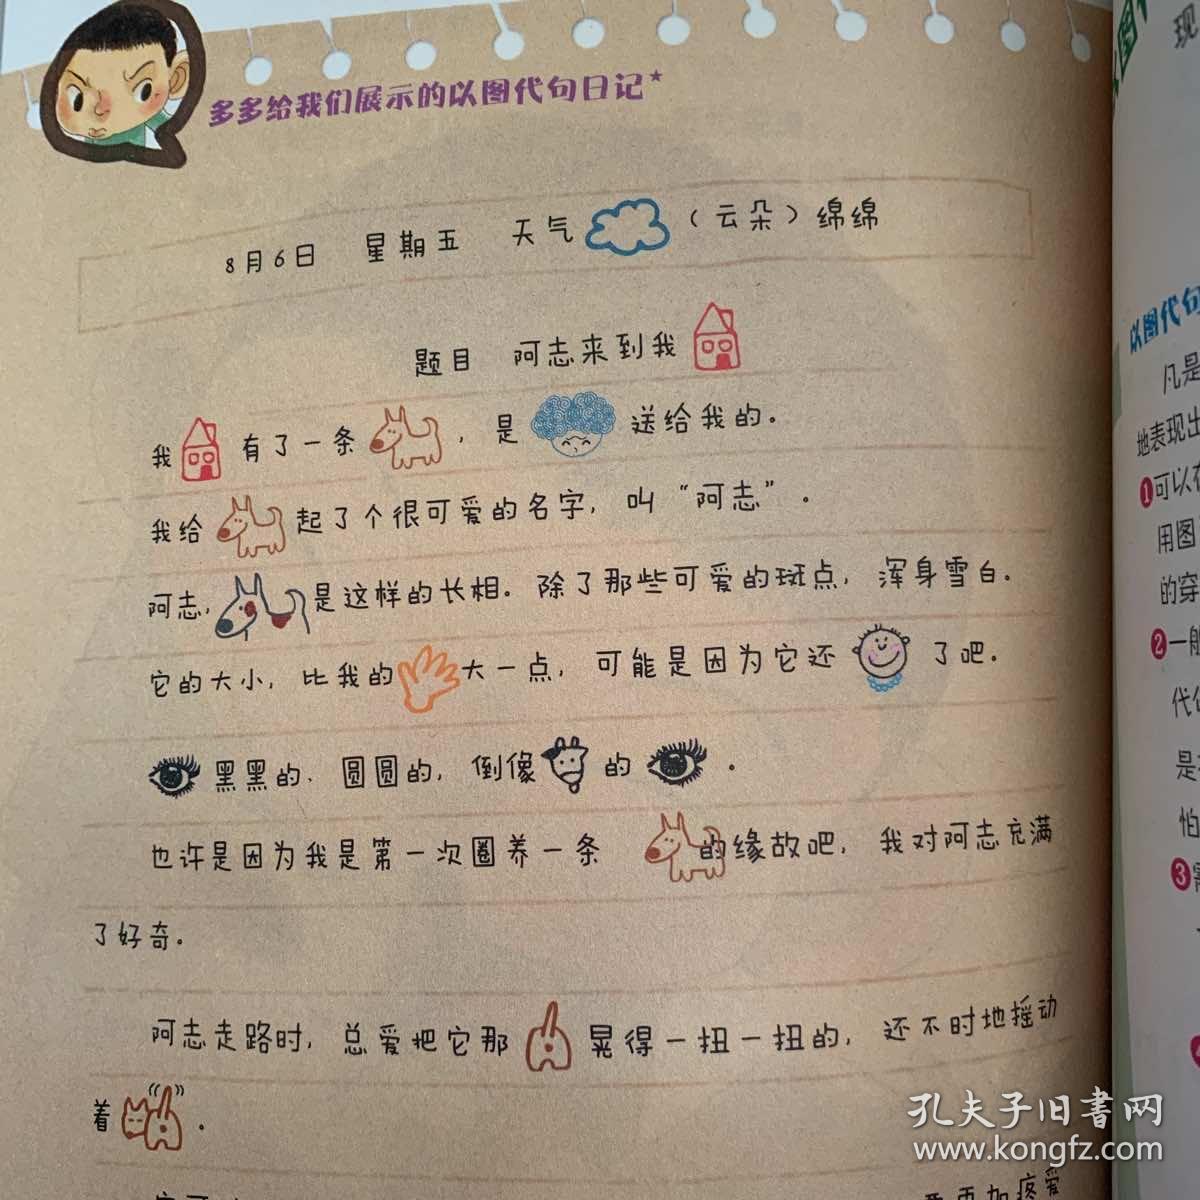 多多给我们展示的以图代句日记★
8月6日 星期五 天气 （云朵）绵绵
题目 阿志来到我
我 有了一条 ，是 送给我的。
我给 起了个很可爱的名字，叫“阿志”。
阿志， 是这样的长相。除了那些可爱的斑点，浑身雪白。
它的大小，比我的 大一点，可能是因为它还 了吧。
黑黑的、圆圆的，倒像 的 。
也许是因为我是第一次圈养一条 的缘故吧，我对阿志充满
了好奇。
阿志走路时，总爱把它那 晃得一扭一扭的，还不时地摇动
着 。
更加疼爱
现
以图代句
凡是
地表现出
❶可以在
用图
的穿
❷一般
是
怕
❸
孔夫子旧书网
www.kongfz.com